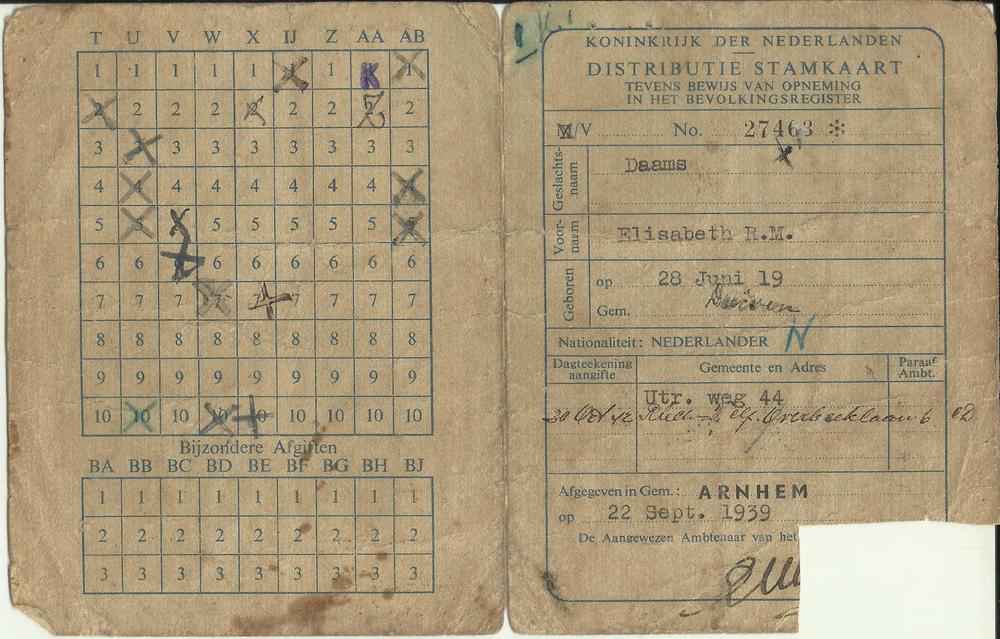 T U V W X IJ Z AA AB
1 1 1 1 1 1 1 K 1
2 2 2 2 2 2 2 2 2
3 3 3 3 3 3 3 3 3
4 4 4 4 4 4 4 4 4
5 5 5 5 5 5 5 5 5
6 6 6 6 6 6 6 6 6
7 7 7 7 7 7 7 7 7
8 8 8 8 8 8 8 8 8
9 9 9 9 9 9 9 9 9
10 10 10 10 10 10 10 10 10
Bijzondere Afgiften
BA BB BC BD BE BF BG BH BJ
1 1 1 1 1 1 1 1 1
2 2 2 2 2 2 2 2 2
3 3 3 3 3 3 3 3 3
KONINKRIJK DER NEDERLANDEN
DISTRIBUTIE STAMKAART
TEVENS BEWIJS VAN OPNEMING
IN HET BEVOLKINGSREGISTER
M/V No. 27463 *
Geslachts-
naam
Daams
Voor-
naam
Elisabeth R.M.
Geboren
op 28 Juni 19
Gem. Duiven
Nationaliteit: NEDERLANDER N
Dagteekening
aangifte
Gemeente en Adres
Paraaf
Ambt.
Utr. weg 44
30 Oct 42 Overbeeklaan 6
Afgegeven in Gem.: ARNHEM
op 22 Sept. 1939
De Aangewezen Ambtenaar van het